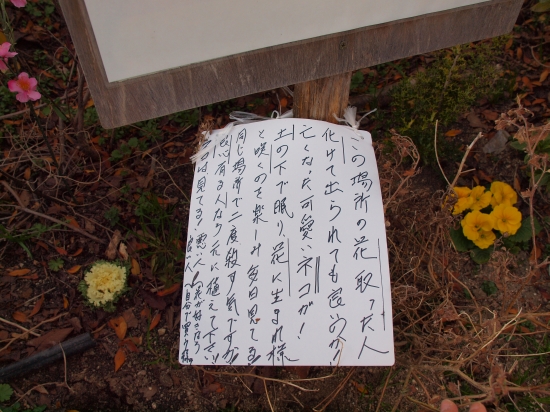 この場所の花取った人
化けて出られても良いのか!
亡くなった可愛いネコが!
土の下で眠り、花に生まれ様
と咲くのを楽しみ毎日見てる
同じ場所で二度殺す気ですか
心有る人なら元に植えて下さい
見てる!悪い人